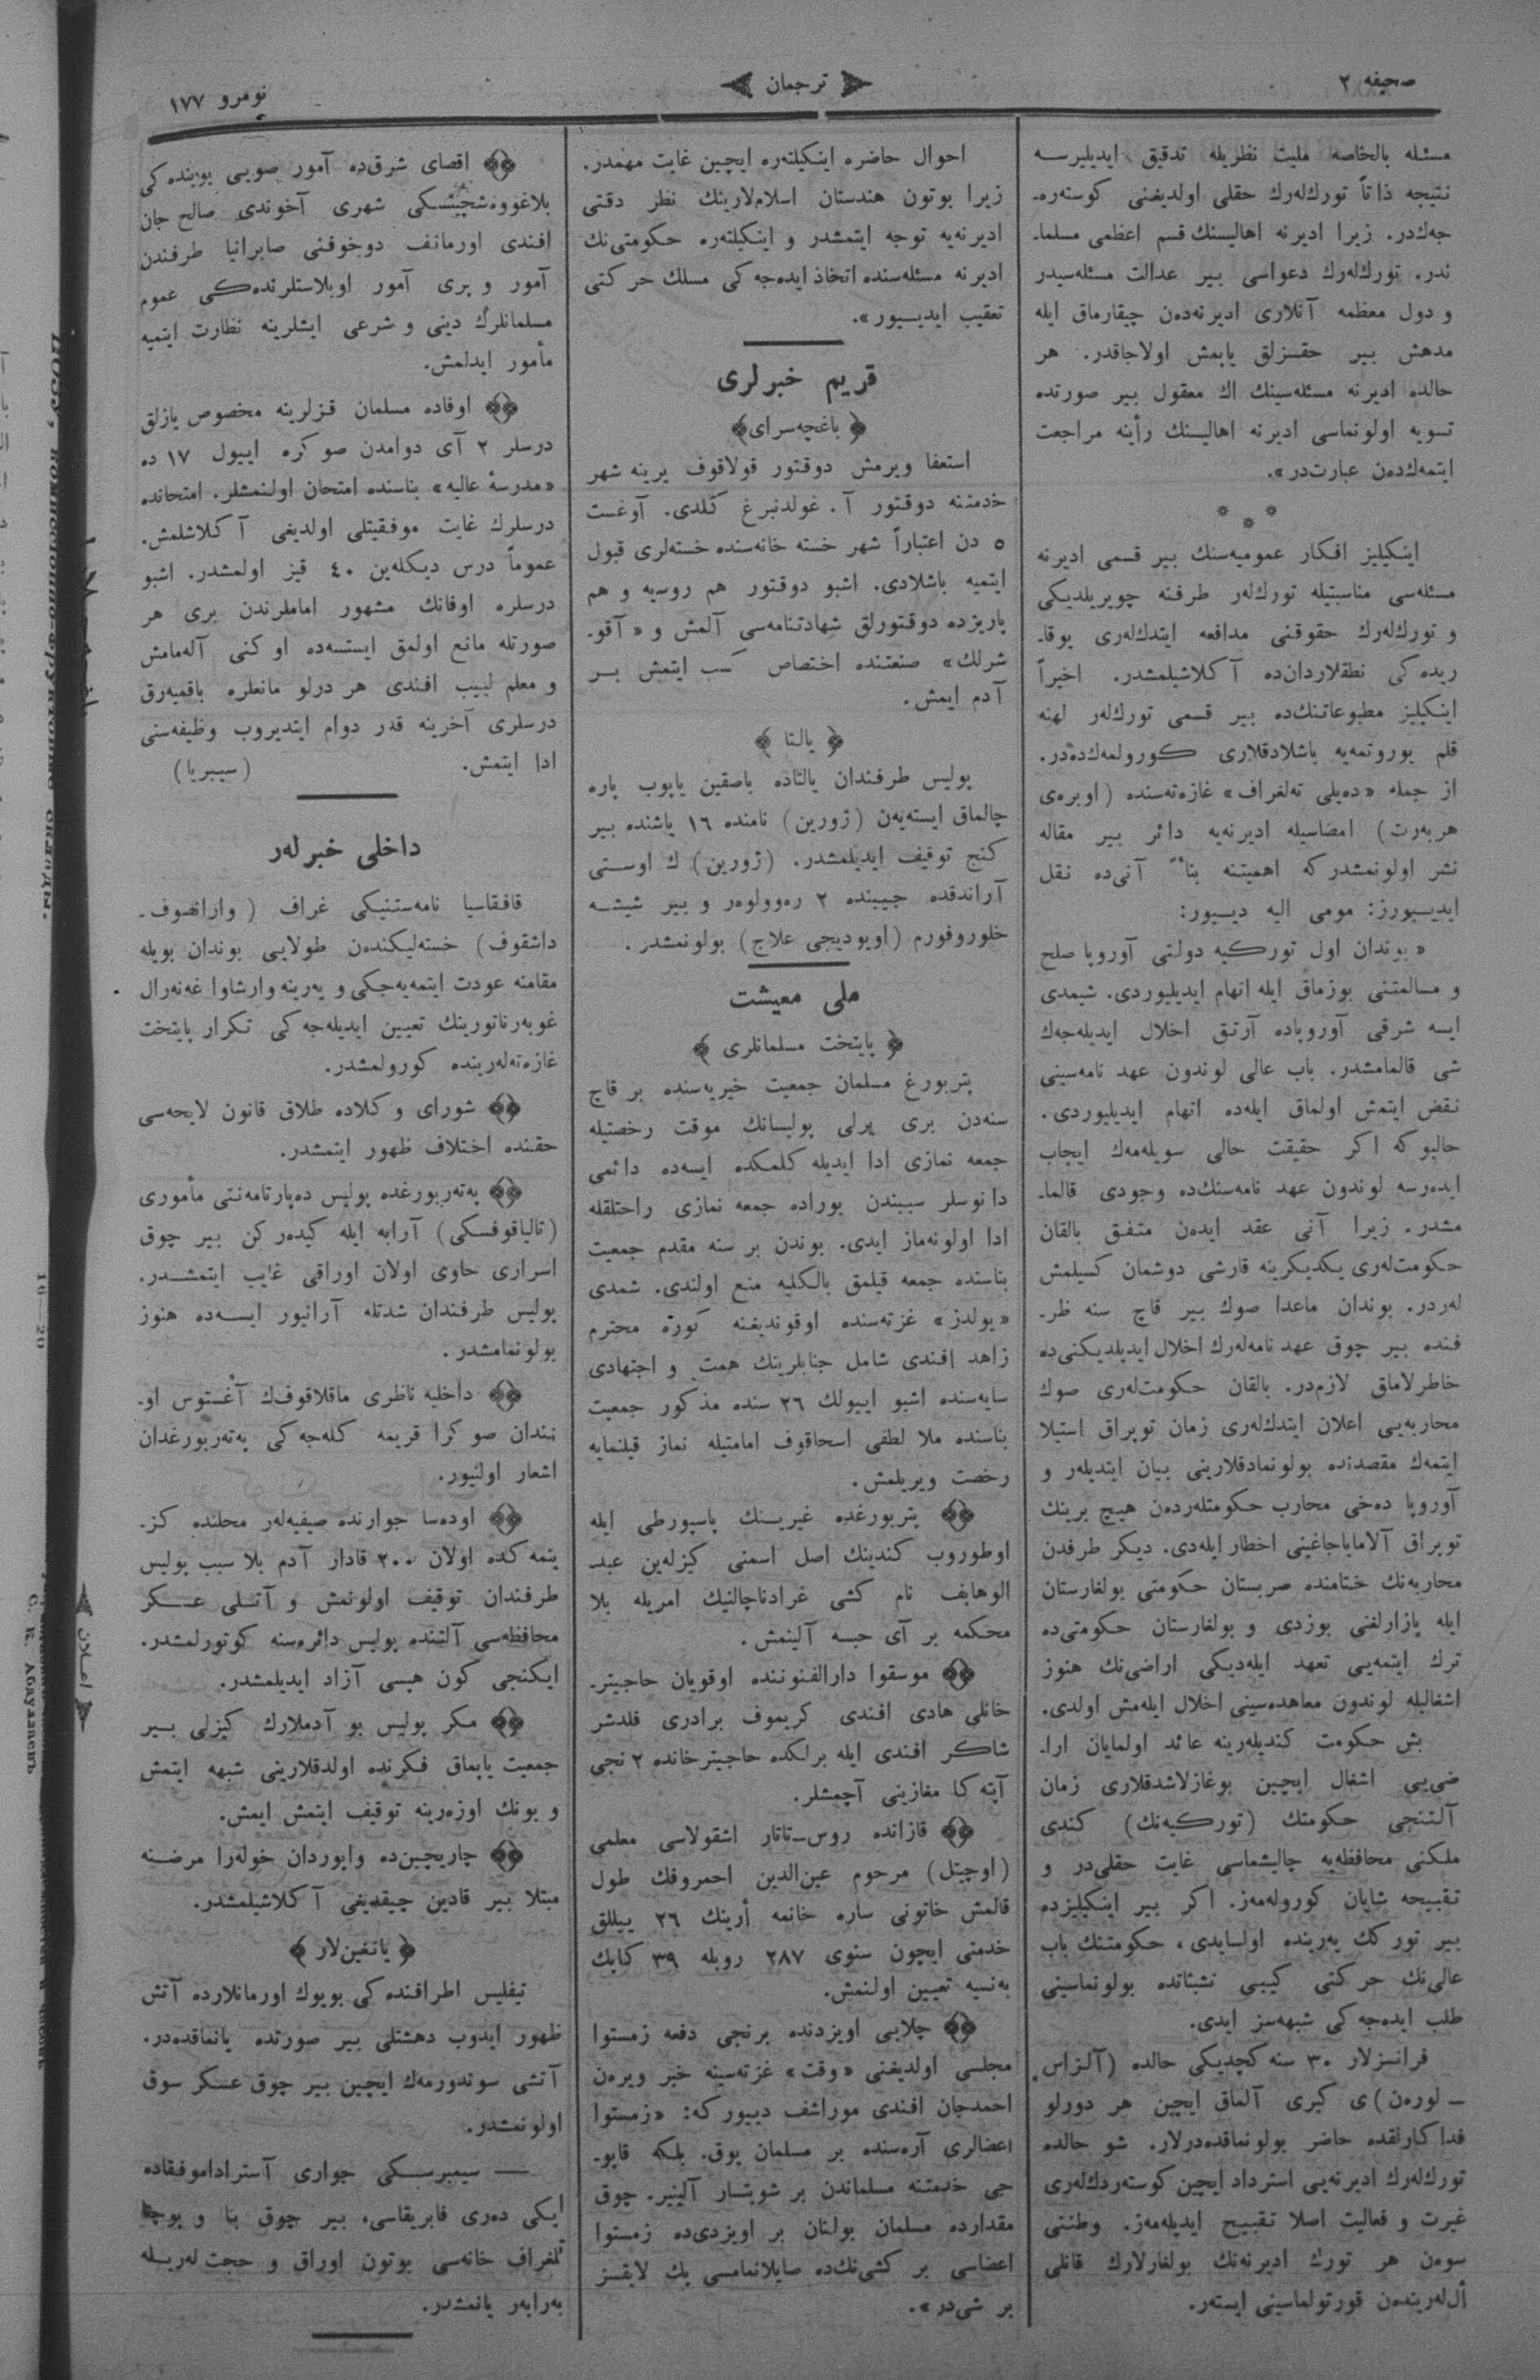 صحیفه ٢
ترجمان
نومرو ١٧٧
مسئله بالخاصه ملیت نظریله تدقیق ایدیلیرسه
نتیجه ذاتاً تورك‌لەرك حقلی اولدیغنی كوستەرە-
جەك‌در. زیرا ادیرنه اهالیسنك قسم اعظمی مسلما-
ندر. تورك‌لەرك دعواسی بیر عدالت مسئله‌سیدر
و دول معظمه آنلاری ادیرنەدەن چیقارماق ایله
مدهش بیر حقسزلق یاپمش اولاجاقدر. هر
حالده ادیرنه مسئله‌سینك اك معقول بیر صورتده
تسویه اولونماسی ادیرنه اهالیسنك رأینه مراجعت
ایتمەك‌دەن عبارت‌در».
* * *
اینكیلیز افكار عمومیه‌سنك بیر قسمی ادیرنه
مسئله‌سی مناسبتیله تورك‌لەر طرفنه چویریلدیكی
و تورك‌لەرك حقوقنی مدافعه ایتدك‌لەری یوقا-
ریده‌كی نطقلاردان‌ده آكلاشیلمشدر. اخیراً
اینكیلیز مطبوعاتنك‌ده بیر قسمی تورك‌لەر لهنه
قلم یوروتمەیه باشلادقلاری كورولمەك‌دەدر.
از جمله «دەیلی تەلغراف» غازەتەسنده (اوبرەی
هربەرت) امضاسیله ادیرنەیه دائر بیر مقاله
نشر اولونمشدركه اهمیتنه بناً آنی‌ده نقل
ایدییورز: مومی الیه دییور:
«بوندان اول توركیه دولتی آوروپا صلح
و مسالمتنی بوزماق ایله اتهام ایدیلیوردی. شیمدی
ایسه شرقی آوروپاده آرتق اخلال ایدیلەجەك
شی قالمامشدر. باب عالی لوندون عهد نامەسینی
نقض ایتمش اولماق ایله‌ده اتهام ایدیلیوردی.
حالبوكه اكر حقیقت حالی سویلەمەك ایجاب
ایدەرسه لوندون عهد نامەسنك‌ده وجودی قالما-
مشدر. زیرا آنی عقد ایدەن متفق بالقان
حكومت‌لەری یكدیكرینه قارشی دوشمان كسیلمش
لەردر. بوندان ماعدا صوك بیر قاچ سنه ظر-
فنده بیر چوق عهد نامەلەرك اخلال ایدیلدیكنی‌ده
خاطرلاماق لازم‌در. بالقان حكومت‌لەری صوك
محاربەیی اعلان ایتدك‌لەری زمان توپراق استیلا
ایتمەك مقصدنده بولونمادقلارینی بیان ایتدیلەر و
آوروپا دەخی محارب حكومتلەردەن هیچ برینك
توپراق آلامایاجاغینی اخطار ایلەدی. دیكر طرفدن
محاربەنك ختامنده صربستان حكومتی بولغارستان
ایله پازارلغنی بوزدی و بولغارستان حكومتی‌ده
ترك ایتمەیی تعهد ایلەدیكی اراضی‌نك هنوز
اشغالیله لوندون معاهدەسینی اخلال ایلەمش اولدی.
بش حكومت كندیلەرینه عائد اولمایان ارا-
ضی‌یی اشغال ایچین بوغازلاشدقلاری زمان
آلتنجی حكومتك (توركیەنك) كندی
ملكنی محافظەیه چالیشماسی غایت حقلی‌در و
تقبیحه شایان كورولەمەز. اكر بیر اینكیلیزده
بیر توركك یەرینده اولسایدی، حكومتنك باب
عالی‌نك حركتی كیبی تشبثاتده بولونماسینی
طلب ایدەجەكی شبهەسز ایدی.
فرانسزلار ٣٠ سنه كچدیكی حالده (آلزاس
ــ لورەن)ی كیری آلماق ایچین هر دورلو
فداكارلقده حاضر بولونماقدەدرلار. شو حالده
تورك‌لەرك ادیرنەیی استرداد ایچین كوستەردك‌لەری
غیرت و فعالیت اصلا تقبیح ایدیلەمەز. وطننی
سوەن هر تورك ادیرنەنك بولغارلارك قانلی
أل‌لەریندەن قورتولماسینی ایستەر.
احوال حاضره اینكیلتەره ایچین غایت مهمدر.
زیرا بوتون هندستان اسلام‌لارینك نظر دقتی
ادیرنەیه توجه ایتمشدر و اینكیلتەره حكومتی‌نك
ادیرنه مسئله‌سنده اتخاذ ایدەجەكی مسلك حركتی
تعقیب ایدییور».
قریم خبرلری
﴿باغچەسرای﴾
استعفا ویرمش دوقتور قولاقوف یرینه شهر
خدمتنه دوقتور آ. غولدنبرغ كلدی. آوغست
٥ دن اعتباراً شهر خسته خانەسنده خستەلری قبول
ایتمیه باشلادی. اشبو دوقتور هم روسیه و هم
پاریزده دوقتورلق شهادتنامەسی آلمش و «آقو-
شرلك» صنعتنده اختصاص كسب ایتمش بر
آدم ایمش.
﴿یالتا﴾
پولیس طرفندان یالتاده باصقین یاپوب پاره
چالماق ایستەیەن (زورین) نامنده ١٦ یاشنده بیر
كنج توقیف ایدیلمشدر. (زورین)ك اوستی
آراندقده جیبنده ٢ رەوولوەر و بیر شیشه
خلوروفورم (اویودیجی علاج) بولونمشدر.
ملی معیشت
﴿پایتخت مسلمانلری﴾
پتربورغ مسلمان جمعیت خیریەسنده بر قاچ
سنەدن بری یرلی پولیسانك موقت رخصتیله
جمعه نمازی ادا ایدیله كلمكده ایسەده دائمی
دانوسلر سببندن بوراده جمعه نمازی راحتلقله
ادا اولونەماز ایدی. بوندن بر سنه مقدم جمعیت
بناسنده جمعه قیلمق بالكلیه منع اولندی. شمدی
«یولدز» غزتەسنده اوقوندیغنه كوره محترم
زاهد افندی شامل جنابلرینك همت و اجتهادی
سایەسنده اشبو اییولك ٢٦ سنده مذكور جمعیت
بناسنده ملا لطفی اسحاقوف امامتیله نماز قیلنمایه
رخصت ویریلمش.
پتربورغده غیرینك پاسپورطی ایله
اوطوروب كندینك اصل اسمنی كیزلەین عبد-
الوهابف نام كشی غرادناچالنیك امریله بلا
محكمه بر آی حبسه آلینمش.
موسقوا دارالفنوننده اوقویان حاجیتر-
خانلی هادی افندی كریموف برادری قلدشر
شاكر افندی ایله برلكده حاجیترخانده ٢ نجی
آپتەكا مغازینی آچمشلر.
قازانده روس-تاتار اشقولاسی معلمی
(اوچیتل) مرحوم عین‌الدین احمروفك طول
قالمش خاتونی ساره خانمه أرینك ٢٦ ییللق
خدمتی ایچون سنوی ٢٨٧ روبله ٣٩ كاپك
پەنسیه تعیین اولنمش.
چلابی اویزدنده برنجی دفعه زمستوا
مجلسی اولدیغنی «وقت» غزتەسینه خبر ویرەن
احمدجان افندی موراشف دییوركه: «زمستوا
اعضالری آرەسنده بر مسلمان یوق. بلكه قاپو-
جی خدمتنه مسلماندن بر شویتسار آلینیر. چوق
مقدارده مسلمان بولنان بر اویزدی‌ده زمستوا
اعضاسی بر كشی‌نك‌ده صایلانمامسی پك لایقسز
بر شی‌در».
اقصای شرق‌ده آمور صویی بوینده‌كی
بلاغووەشچنسكی شهری آخوندی صالح جان
افندی اورمانف دوخوفنی صابرانیا طرفندن
آمور و پری آمور اوبلاستلرنده‌كی عموم
مسلمانلرك دینی و شرعی ایشلرینه نظارت ایتمیه
مأمور ایدلمش.
اوفاده مسلمان قزلرینه مخصوص یازلق
درسلر ٢ آی دوامدن صوكره اییول ١٧ ده
«مدرسهٔ عالیه» بناسنده امتحان اولنمشلر. امتحانده
درسلرك غایت موفقیتلی اولدیغی آكلاشلمش.
عموماً درس دیكلەین ٤٠ قیز اولمشدر. اشبو
درسلره اوفانك مشهور اماملرندن بری هر
صورتله مانع اولمق ایستسەده اوكنی آلەمامش
و معلم لبیب افندی هر درلو مانعلره باقمیەرق
درسلری آخرینه قدر دوام ایتدیروب وظیفەسنی
ادا ایتمش. (سیبریا)
داخلی خبرلەر
قافقاسیا نامەستنیكی غراف (وارانسوف-
داشقوف) خستەلیكندەن طولایی بوندان بویله
مقامنه عودت ایتمەیەجكی و یەرینه وارشاوا غەنەرال
غوبەرناتورینك تعیین ایدیلەجەكی تكرار پایتخت
غازەتەلەرینده كورولمشدر.
شورای وكلاده طلاق قانون لایحەسی
حقنده اختلاف ظهور ایتمشدر.
پەتەربورغده پولیس دەپارتامەنتی مأموری
(تالیاقوفسكی) آرابه ایله كیدەركن بیر چوق
اسراری حاوی اولان اوراقی غایب ایتمشدر.
پولیس طرفندان شدتله آرانیور ایسەده هنوز
بولونمامشدر.
داخلیه ناظری ماقلاقوف‌ك آغستوس او-
نندان صوكرا قریمه كلەجەكی پەتەربورغدان
اشعار اولنیور.
اودەسا جوارنده صیفیەلەر محلنده كز-
ینمەكده اولان ٢٠٠ قادار آدم بلا سبب پولیس
طرفندان توقیف اولونمش و آتلی عسكر
محافظەسی آلتنده پولیس دائرەسنه كوتورلمشدر.
ایكنجی كون هپسی آزاد ایدیلمشدر.
مكر پولیس بو آدملارك كیزلی بیر
جمعیت یاپماق فكرنده اولدقلارینی شبهه ایتمش
و بونك اوزەرینه توقیف ایتمش ایمش.
چاریچین‌ده واپوردان خولەرا مرضنه
مبتلا بیر قادین چیقدیغی آكلاشیلمشدر.
﴿یانغین‌لار﴾
تیفلیس اطرافنده‌كی بویوك اورمانلارده آتش
ظهور ایدوب دهشتلی بیر صورتده یانماقدەدر.
آتشی سوندورمەك ایچین بیر چوق عسكر سوق
اولونمشدر.
— سیمبرسكی جواری آستراداموفقاده
ایكی دەری فابریقاسی، بیر چوق بنا و پوچتا
تلغراف خانەسی بوتون اوراق و حجت لەریله
بەرابەر یانمشدر.